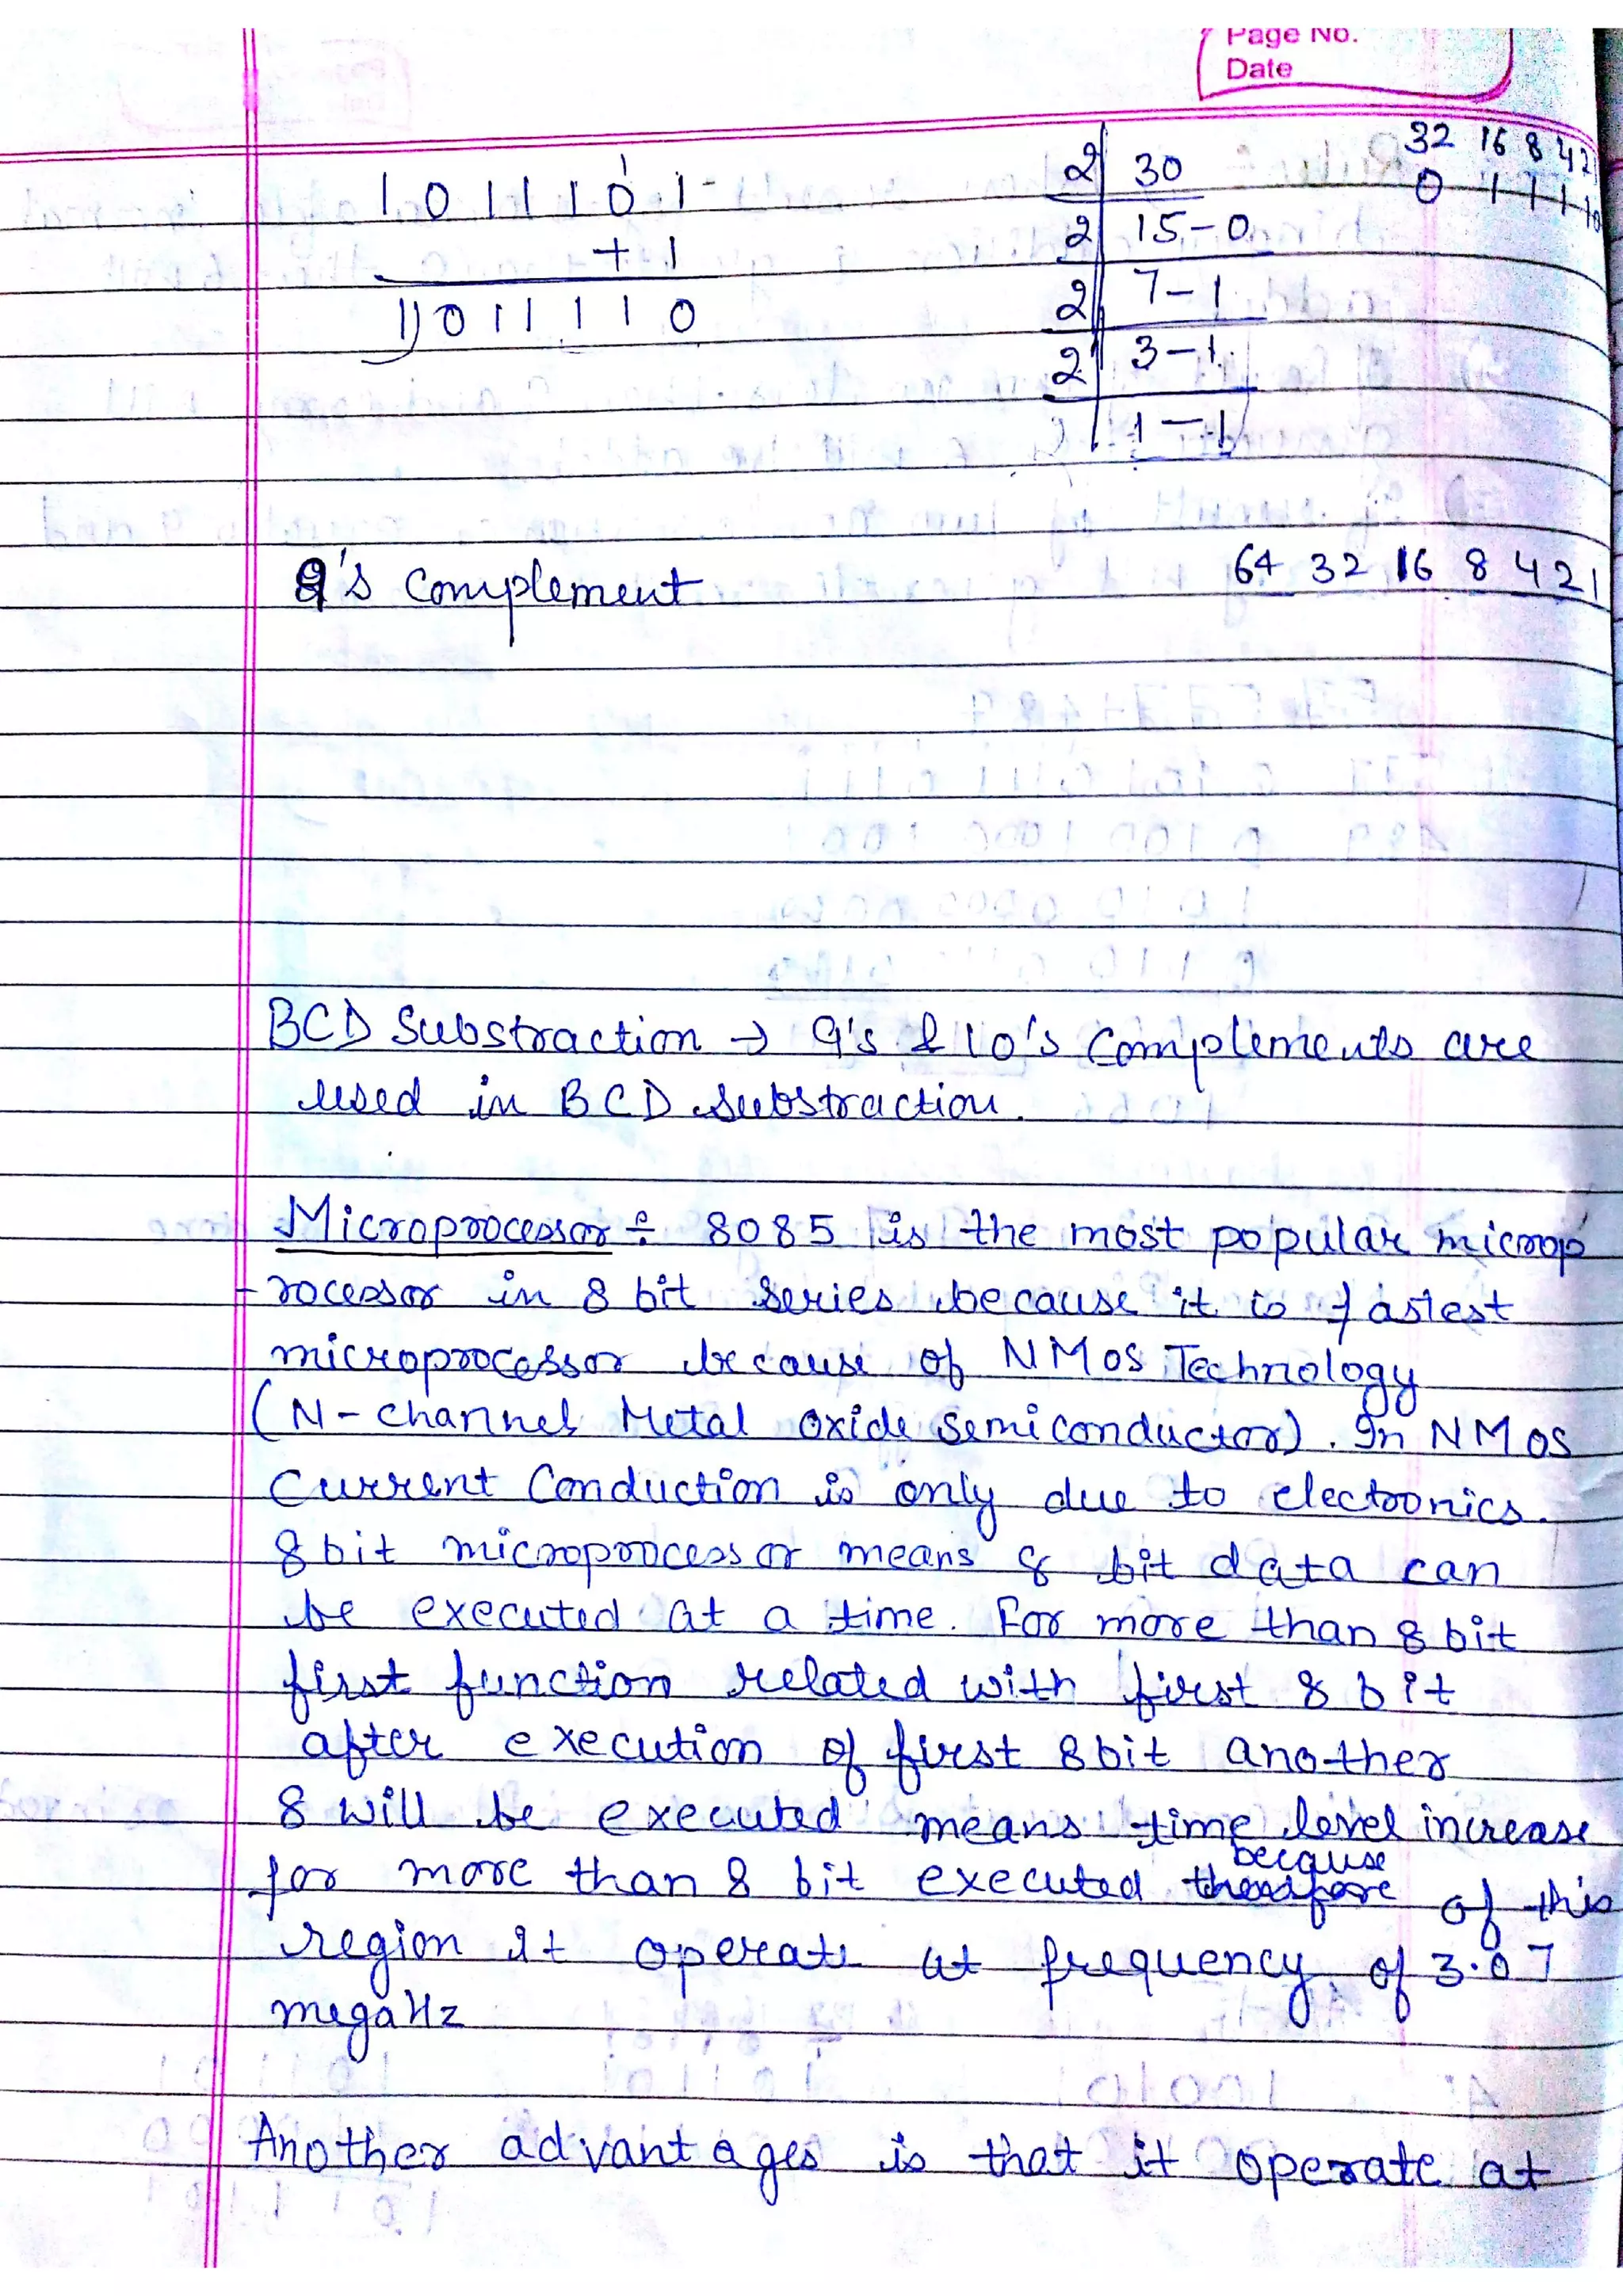 Page No.
Date
1 0 1 1 1 0 1
+ 1
1)0 1 1 1 1 0
2 30
2 15-0
2 7-1
2 3-1
1-1
32 16 8 4 2
0 1 1 1 1 0
9's Complement
64 32 16 8 4 2 1
BCD Substraction → 9's & 10's Complements are
used in BCD Substraction.
Microprocessor ÷ 8085 is the most popular microp
-rocessor in 8 bit series because it is fastest
microprocessor because of NMOS Technology
(N-channel Metal oxide semiconductor). In NMOS
Current Conduction is only due to electronics.
8 bit microprocessor means 8 bit data can
be executed at a time. For more than 8 bit
first function related with first 8 bit
after execution of first 8 bit another
8 will be executed means time level increase
for more than 8 bit executed because of this
region It operate at frequency of 3.07
megaHz
Another advantages is that it operate at